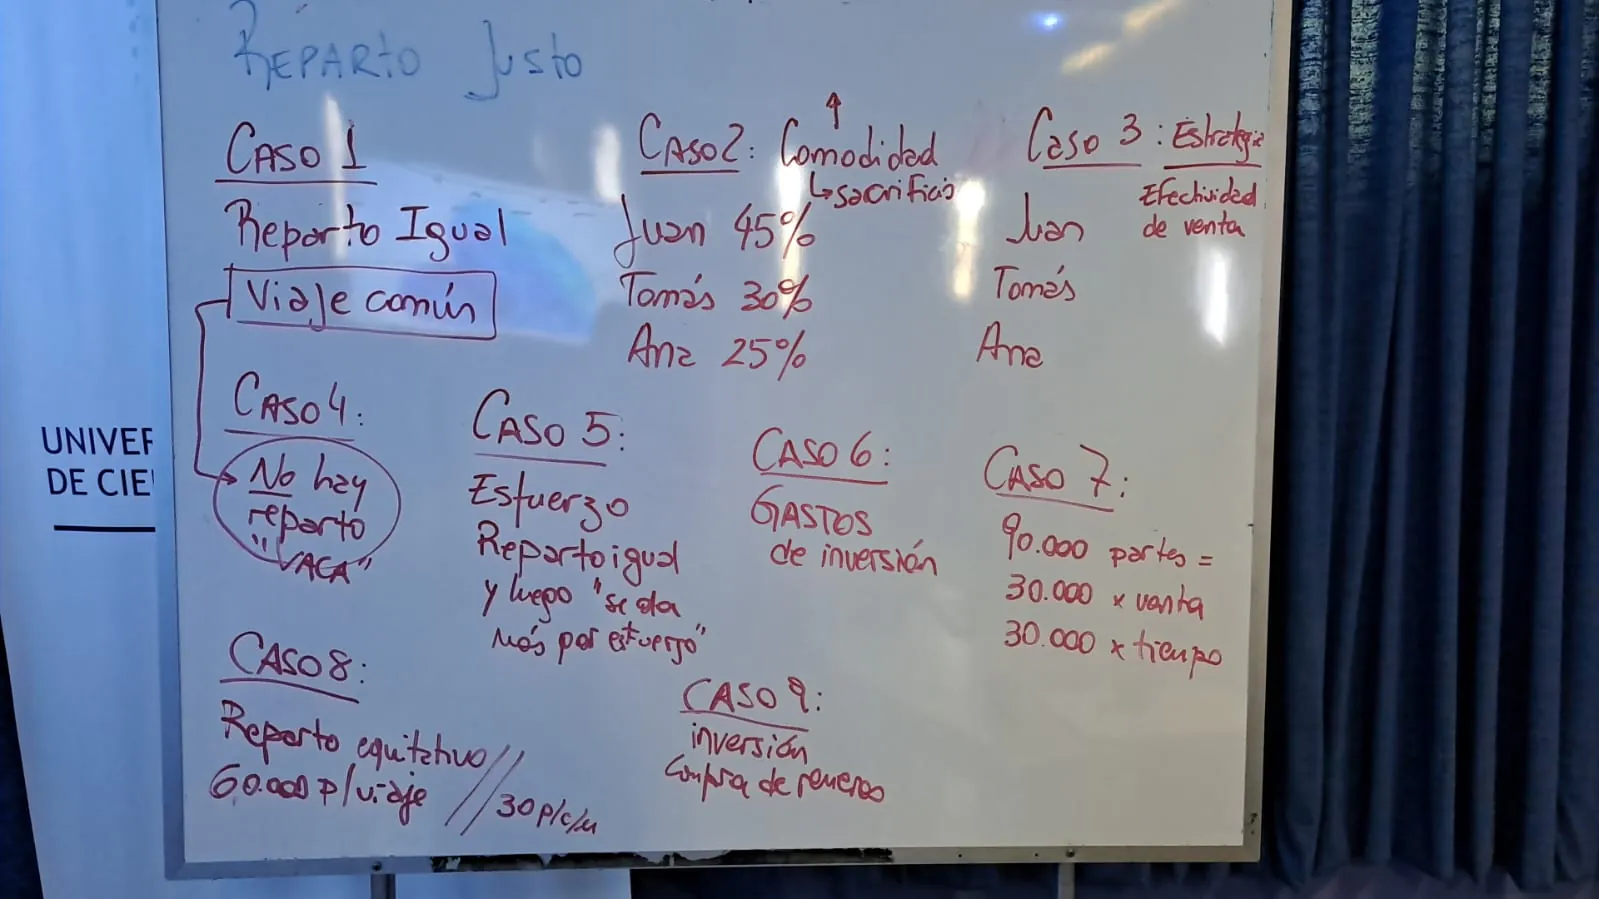 REPARTO Justo
CASO 1
Reparto Igual
Viaje común
CASO 2: Comodidad
↳ sacrificio
Juan 45%
Tomás 30%
Ana 25%
Caso 3: Estrategia
Efectividad
de venta
Juan
Tomás
Ana
CASO 4:
No hay
reparto
"VACA"
CASO 5:
Esfuerzo
Reparto igual
y luego "se da
más por esfuerzo"
CASO 6:
GASTOS
de inversión
CASO 7:
90.000 partes =
30.000 x venta
30.000 x tiempo
CASO 8:
Reparto equitativo
60.000 p/viaje // 30 p/c/u
CASO 9:
inversión
Compra de remeras
UNIVER
DE CIE